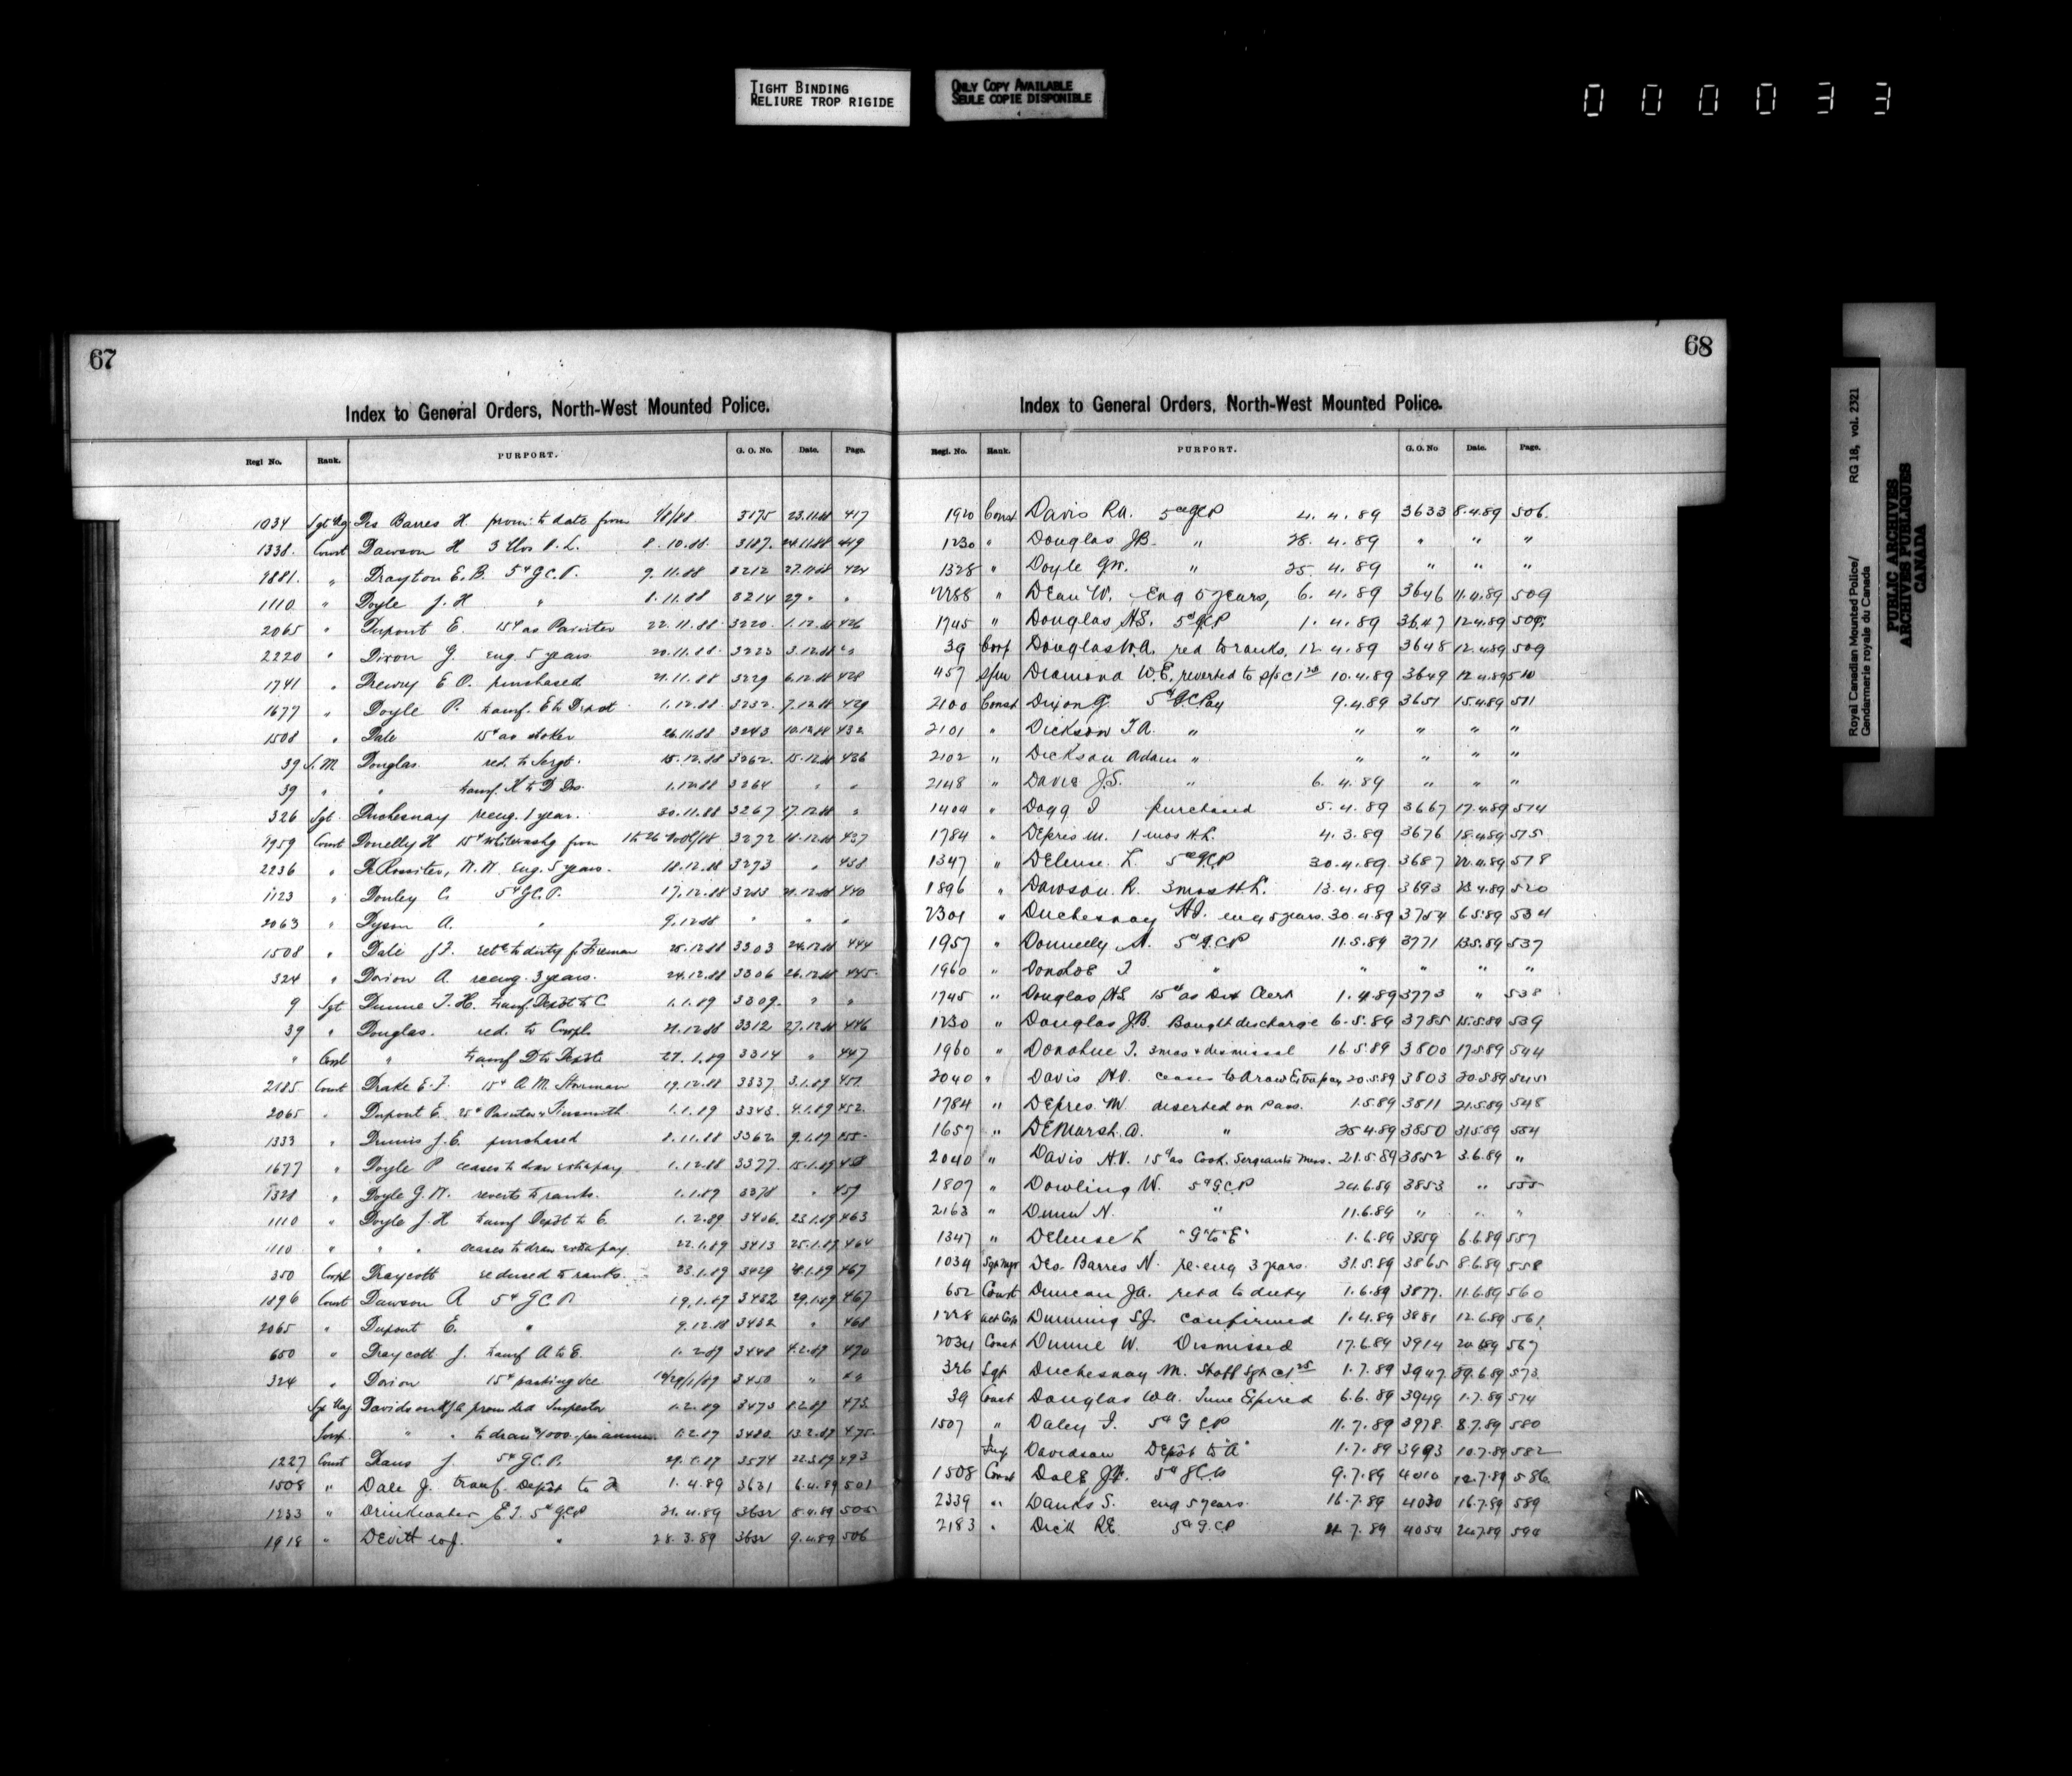 TIGHT BINDING
RELIURE TROP RIGIDE
ONLY COPY AVAILABLE
SEULE COPIE DISPONIBLE
000033
67
Index to General Orders, North-West Mounted Police.
Regl No. Rank. PURPORT. G. O. No. Date. Page.
1034 Sgt Mg Des Barres H. prom: to date from 1/8/88 3175 23.11.88 417
1338. Const Dawson H 8.10.88. 3187. 24.11.88 419
" Drayton E.B. 5¢ G.C.P. 9.11.88 3212 27.11.88 424
1110 " Doyle J.H " 8.11.88 3214 29 " "
2065 " Dupont E. 15¢ as Painter 22.11.88 3220 1.12.88 426
2220 " Dixon G. eng. 5 years 20.11.88 3223 3.12.88 "
1741 " Drewry E O. purchased 21.11.88 3229 6.12.88 428
1677 " Doyle P. transf. E to Depot 1.12.88 3232 7.12.88 429
1508 " Dale 15¢ as stoker 26.11.88 3243 10.12.88 432
39 S.M Douglas. red. to Sergt. 15.12.88 3262. 15.12.88 436
39 " " transf. K to D Div. 1.12.88 3264 " "
326 Sgt. Duchesnay reeng. 1 year. 30.11.88 3267 17.12.88 "
1959 Const Donelly H 15¢ whitewashg from 3272 18.12.88 437
2236 " De Rossiter, N.N. eng. 5 years. 18.12.88 3273 " 438
1123 " Donley C. 5¢ G.C.P. 17.12.88 3283 21.12.88 440
2063 " Dyson A. " 9.12.88 " " "
1508 " Dale J.F. retd to duty fr Fireman 25.12.88 3303 24.12.88 444
324 " Dorion A. reeng. 3 years. 24.12.88 3306 26.12.88 445.
9 Sgt Dunne T.H. transf. Depot to C 1.1.89 3309. " "
39 " Douglas. red. to Corpl. 21.12.88 3312 27.12.88 446
" Corpl " transf D to Depot 27.1.89 3314 " 447
2185 Const Drake E.F. 15¢ A.M. Storeman 19.12.88 3337 3.1.89 451
2065 " Dupont E. 25¢ Painter & Tinsmith 1.1.89 3343. 4.1.89 452.
1333 " J.E. purchased 8.11.88 3362 9.1.89 455.
1677 " Doyle P ceases to draw extra pay 1.12.88 3377. 15.1.89 458
1328 " Doyle G.W. reverts to ranks. 1.1.89 3378 " 459
1110 " Doyle J.H transf Depot to E. 1.2.89 3406. 23.1.89 463
1110 " " " ceases to draw extra pay. 22.1.89 3413 25.1.89 464
350 Corpl Draycott reduced to ranks. 23.1.89 3429 28.1.89 467
1896 Const Dawson R 5¢ G C P. 19.1.89 3432 29.1.89 467
2065 " Dupont E. " 9.12.88 3432 " 468
650 " Draycott J. transf A to E. 1.2.89 3448 4.2.89 470
324 " Dorion 15¢ packing ice 3450 " "
Sgt Maj Davidson promoted Inspector 1.2.89 3473 473
Insp. " " to draw $1000 per annum 1.2.89 3480 13.2.89 475.
1227 Const Davis J. 5¢ G.C.P. 3574 22.3.89 493
1508 " Dale J. transf. Depot to 1.4.89 3631 6.4.89 501
1233 " Drinkwater E J. 5¢ G.C.P 21.4.89 3632 8.4.89 505
1918 " DEvitt " 28.3.89 3632 9.4.89 506
68
Index to General Orders, North-West Mounted Police.
Regl. No. Rank. PURPORT. G.O. No Date. Page.
1920 Const Davis RA. 5¢ G.C.P 4.4.89 3633 8.4.89 506.
1230 " Douglas JB. " 28.4.89 " " "
1328 " Doyle GW. " 25.4.89 " " "
2288 " DEan W. Eng 5 years, 6.4.89 3646 11.4.89 509
1745 " Douglas HS. 5¢ G.C.P 1.4.89 3647 12.4.89 509.
39 Corp Douglas W.A. red to ranks, 12.4.89 3648 12.4.89 509
457 Diamond W.E. reverted to 10.4.89 3649 12.4.89 510
2100 Const Dixon G. 5¢ G.C.Pay 9.4.89 3651 15.4.89 511
2101 " Dickson T.A. " " " " "
2102 " Dickson Adam " " " " "
2148 " Davis J.S. " 6.4.89 " " "
1404 " Dagg I purchased 5.4.89 3667 17.4.89 514
1784 " DEpris M. 1 mos H.L. 4.3.89 3676 18.4.89 515
1347 " DEleuse. L. 5¢ G.C.P 30.4.89. 3687 22.4.89 518
1896 " Dawson. R. 3 mos H.L. 13.4.89 3693 23.4.89 520
2301 " Duchesnay eng 5 years. 30.4.89 3754 6.5.89 534
1957 " Donnelly 5¢ G.C.P 11.5.89 3771 13.5.89 537
1960 " DonohoE T " " " " "
1745 " Douglas HS 15¢ as Clerk 1.4.89 3773 " 538
1230 " Douglas JB. Bought discharge 6.5.89 3785 15.5.89 539
1960 " Donohue T. 3 mos & dismissal 16.5.89 3800 17.5.89 544
2040 " Davis H.V. ceases to draw Extra pay 20.5.89 3803 20.5.89 545
1784 " DEpres. M deserted on pass. 1.5.89 3811 21.5.89 548
1657 " DEMarsh. A. " 25.4.89 3850 31.5.89 554
2040 " Davis H.V. 15¢ as Cook. Sergeants Mess. 21.5.89 3852 3.6.89 "
1807 " Dowling W. 5¢ G.C.P 24.6.89 3853 " 555
2163 " Dunn N. " 11.6.89 " " "
1347 " DEleuse L "G" to "E" 1.6.89 3859 6.6.89 557
1034 Sgt Mjr Des. Barres N. re-eng 3 years. 31.5.89 3865 8.6.89 558
652 Const Duncan JA. retd to duty 1.6.89 3877. 11.6.89 560
1228 act Corp Dunning S.J. confirmed 1.4.89 3881 12.6.89 561.
2034 Const Dunne W. Dismissed 17.6.89 3914 20.6.89 567
326 Sgt Duchesnay M. Staff Sgt 1.7.89 3947 29.6.89 573.
39 Const Douglas W.A. Time Expired 6.6.89 3949 1.7.89 574
1507 " Daley J. 5¢ G.C.P 11.7.89 3978. 8.7.89 580
Insp Davidson Depôt to "A" 1.7.89 3993 10.7.89 582
1508 Const DalE JF. 5¢ 9.7.89 4010 12.7.89 586
2339 " Danks S. eng 5 years. 16.7.89 4030 16.7.89 589
2183 " Dick RE. 5¢ G.C.P 4054 24.7.89
Royal Canadian Mounted Police/ RG 18, vol. 2321
Gendarmerie royale du Canada
PUBLIC ARCHIVES
ARCHIVES PUBLIQUES
CANADA